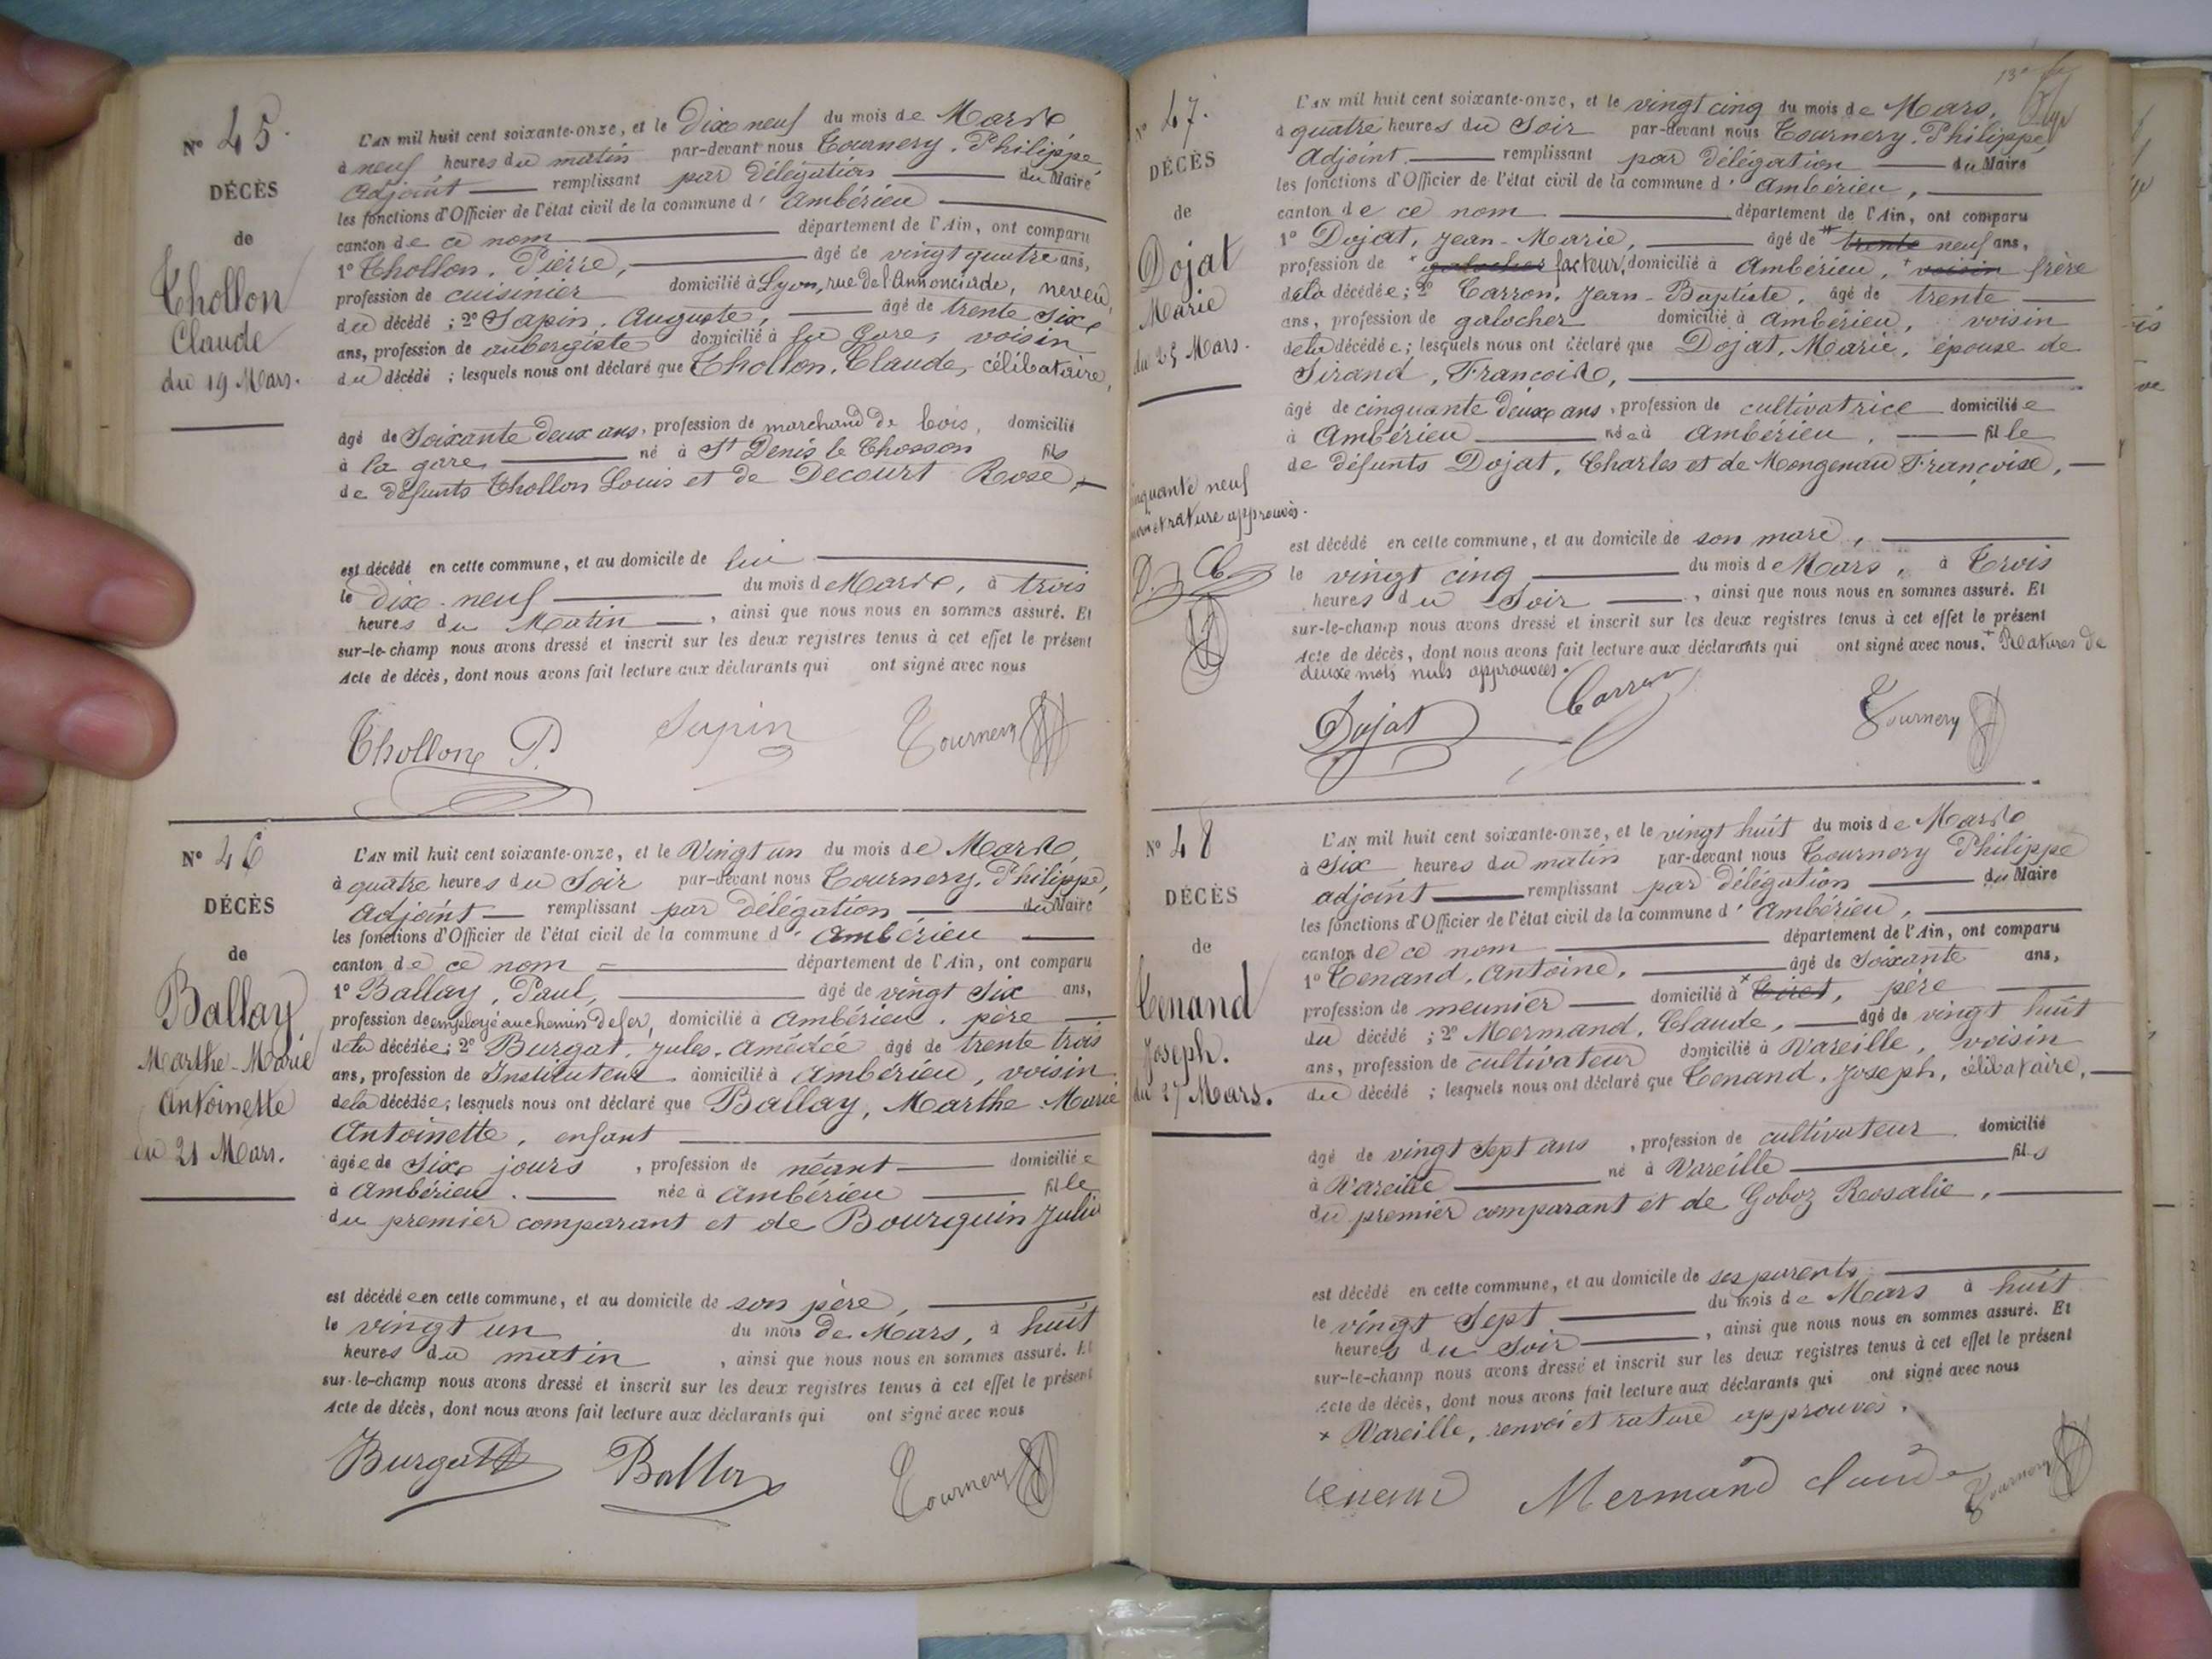 N° 45.
DÉCÈS
de
Thollon
Claude
du 19 Mars.
L'AN mil huit cent soixante-onze, et le Dix neuf du mois de Mars
à neuf heures du matin par-devant nous Tournery, Philippe,
Adjoint remplissant par délégation du Maire
les fonctions d'Officier de l'état civil de la commune d' Ambérieu
canton de ce nom département de l'Ain, ont comparu
1° Thollon, Pierre, âgé de vingt quatre ans,
profession de cuisinier domicilié à Lyon, rue de l'Annonciade, neveu
du décédé ; 2° Sapin, Auguste, âgé de trente six
ans, profession de aubergiste domicilié à la gare, voisin
du décédé ; lesquels nous ont déclaré que Thollon, Claude, célibataire,
âgé de Soixante deux ans, profession de marchand de bois, domicilié
à la gare né à St Denis le Chosson fils
de défunts Thollon Louis et de Decourt Rose,
est décédé en cette commune, et au domicile de lui
le dix-neuf du mois de Mars, à trois
heures du Matin, ainsi que nous nous en sommes assuré. Et
sur-le-champ nous avons dressé et inscrit sur les deux registres tenus à cet effet le présent
Acte de décès, dont nous avons fait lecture aux déclarants qui ont signé avec nous
Thollon P. Sapin Tournery
N° 46
DÉCÈS
de
Ballay
Marthe-Marie
Antoinette
du 21 Mars.
L'AN mil huit cent soixante-onze, et le Vingt un du mois de Mars,
à quatre heures du Soir par-devant nous Tournery, Philippe,
Adjoint remplissant par délégation du Maire
les fonctions d'Officier de l'état civil de la commune d' Ambérieu
canton de ce nom département de l'Ain, ont comparu
1° Ballay, Paul, âgé de vingt six ans,
profession de employé au chemin de fer, domicilié à Ambérieu, père
de la décédée; 2° Burgat, Jules, Amédée âgé de trente trois
ans, profession de Instituteur domicilié à Ambérieu, voisin
de la décédée; lesquels nous ont déclaré que Ballay, Marthe-Marie
Antoinette, enfant
âgée de Six jours, profession de néant domiciliée
à Ambérieu née à Ambérieu fille
du premier comparant et de Bourguin Julie
est décédée en cette commune, et au domicile de son père,
le vingt un du mois de Mars, à huit
heures du matin, ainsi que nous nous en sommes assuré. Et
sur-le-champ nous avons dressé et inscrit sur les deux registres tenus à cet effet le présent
Acte de décès, dont nous avons fait lecture aux déclarants qui ont signé avec nous
Burgat Ballay Tournery
13e
N° 47.
DÉCÈS
de
Dojat
Marie
du 25 Mars.
L'AN mil huit cent soixante-onze, et le vingt cinq du mois de Mars,
à quatre heures du Soir par-devant nous Tournery, Philippe,
Adjoint remplissant par délégation du Maire
les fonctions d'Officier de l'état civil de la commune d' Ambérieu,
canton de ce nom département de l'Ain, ont comparu
1° Dojat, Jean-Marie, âgé de trente neuf ans,
profession de galocher facteur, domicilié à Ambérieu, voisin frère
de la décédée; 2° Carron, Jean-Baptiste, âgé de trente
ans, profession de galocher domicilié à Ambérieu, voisin
de la décédée; lesquels nous ont déclaré que Dojat, Marie, épouse de
Sirand, François,
âgé de cinquante deux ans, profession de cultivatrice domiciliée
à Ambérieu née à Ambérieu, fille
de défunts Dojat, Charles et de Mongenau Françoise,
cinquante neuf
renvoi et rature approuvés.
D. J C.
est décédé en cette commune, et au domicile de son mari,
le vingt cinq du mois de Mars, à Trois
heures du Soir, ainsi que nous nous en sommes assuré. Et
sur-le-champ nous avons dressé et inscrit sur les deux registres tenus à cet effet le présent
Acte de décès, dont nous avons fait lecture aux déclarants qui ont signé avec nous. + Ratures de
deux mots nuls approuvées.
Dojat Carron Tournery
N° 48
DÉCÈS
de
Tenand
Joseph.
du 27 Mars.
L'AN mil huit cent soixante-onze, et le vingt huit du mois de Mars
à Six heures du matin par-devant nous Tournery Philippe
adjoint remplissant par délégation du Maire
les fonctions d'Officier de l'état civil de la commune d' Ambérieu,
canton de ce nom département de l'Ain, ont comparu
1° Tenand, Antoine, âgé de Soixante ans,
profession de meunier domicilié à × Tiret, père
du décédé ; 2° Mermand, Claude, âgé de vingt huit
ans, profession de cultivateur domicilié à Vareille, voisin
du décédé ; lesquels nous ont déclaré que Tenand, Joseph, célibataire,
âgé de vingt Sept ans, profession de cultivateur domicilié
à Vareille né à Vareille fils
du premier comparant et de Goboz Rosalie,
est décédé en cette commune, et au domicile de ses parents
le vingt Sept du mois de Mars à huit
heures du Soir, ainsi que nous nous en sommes assuré. Et
sur-le-champ nous avons dressé et inscrit sur les deux registres tenus à cet effet le présent
Acte de décès, dont nous avons fait lecture aux déclarants qui ont signé avec nous
× Vareille, renvoi et rature approuvés.
Tenand Mermand Claude Tournery